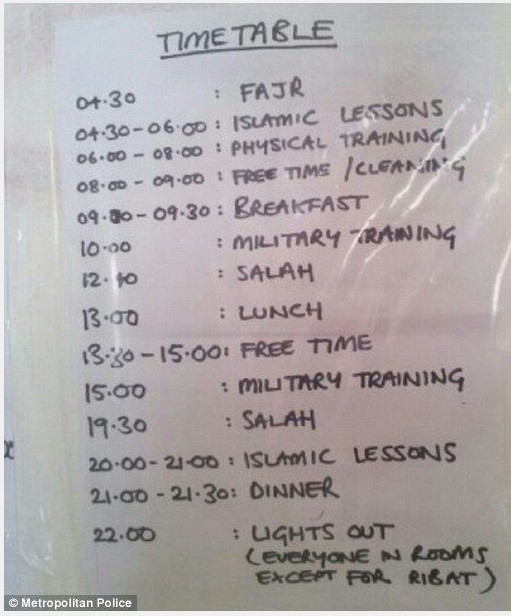 TIMETABLE
04.30 : FAJR
04.30-06.00 : ISLAMIC LESSONS
06.00 - 08.00 : PHYSICAL TRAINING
08.00 - 09.00 : FREE TIME / CLEANING
09.00-09.30 : BREAKFAST
10.00 : MILITARY TRAINING
12.40 : SALAH
13.00 : LUNCH
13.30-15.00: FREE TIME
15.00 : MILITARY TRAINING
19.30 : SALAH
20.00-21.00 : ISLAMIC LESSONS
21.00 - 21.30: DINNER
22.00 : LIGHTS OUT
(EVERYONE IN ROOMS
EXCEPT FOR RIBAT)
© Metropolitan Police